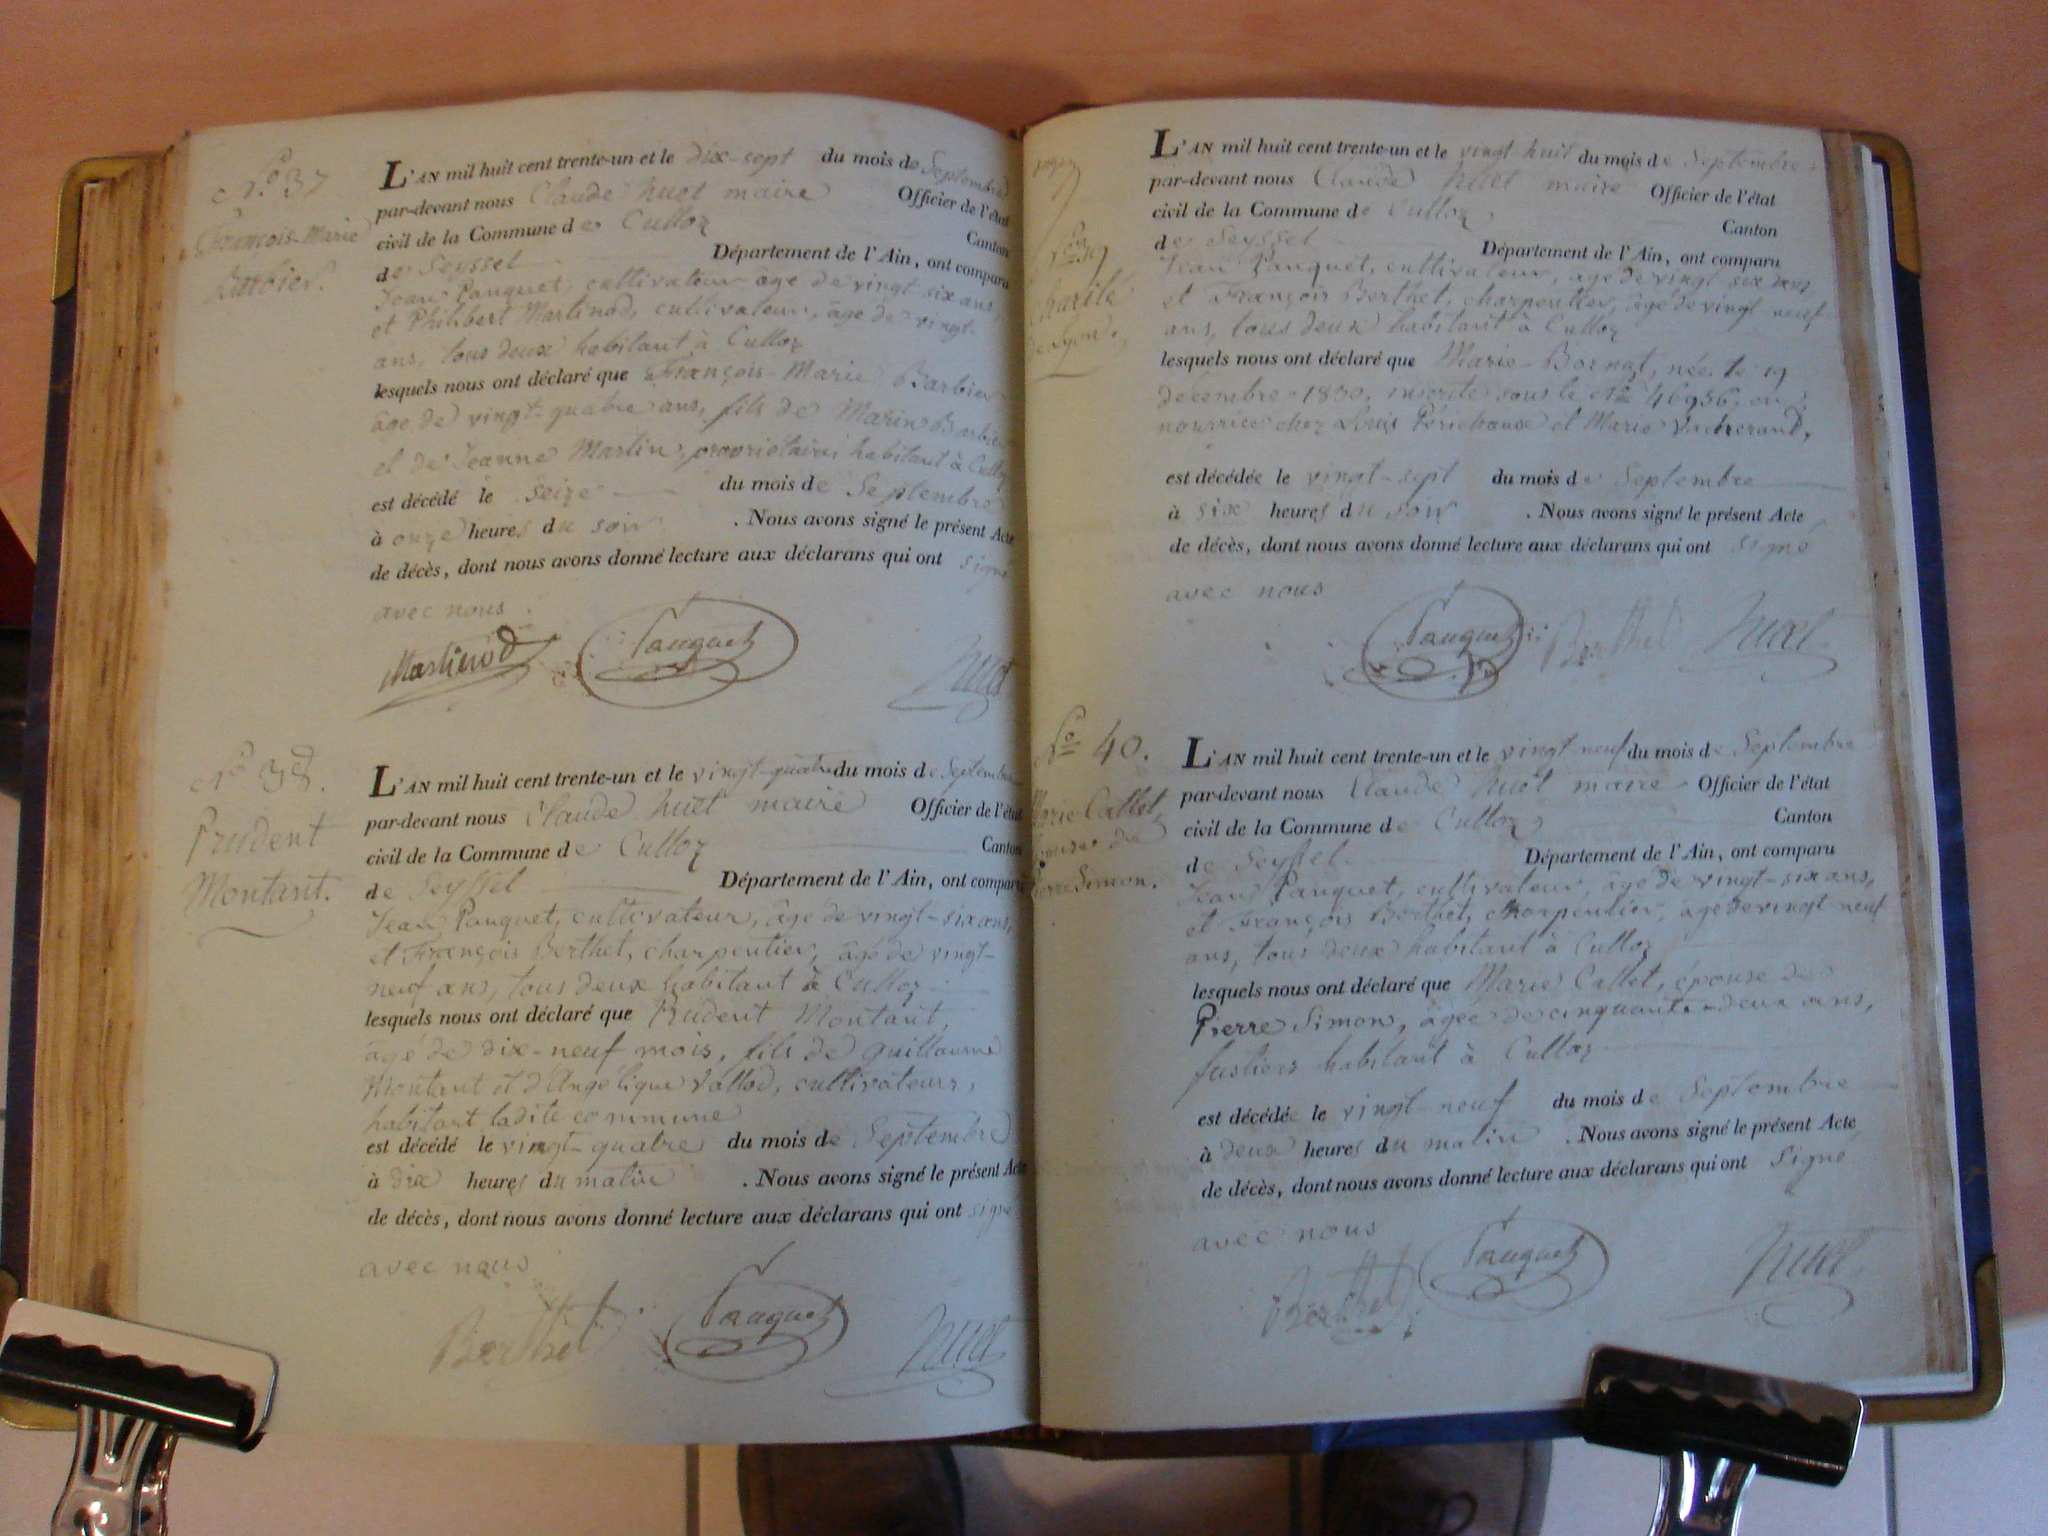 N.º 37
François-Marie
Barbier.
L'AN mil huit cent trente-un et le dix-sept du mois de Septembre
par-devant nous Claude huet maire Officier de l'état
civil de la Commune de Culloz Canton
de Seyssel Département de l'Ain, ont comparu
Jean Pauquet, cultivateur âgé de vingt-six ans,
et Philibert Martinod, cultivateur, âgé de vingt-
ans, tous deux habitant à Culloz
lesquels nous ont déclaré que François-Marie Barbier
âgé de vingt-quatre ans, fils de Marin Barbier
et de Jeanne Martin, propriétaires habitant à Culloz
est décédé le seize du mois de Septembre
à onze heures du soir . Nous avons signé le présent Acte
de décès, dont nous avons donné lecture aux déclarans qui ont signé
avec nous.
Martinod Pauquet huet
N.º 38.
Prudent
Montant.
L'AN mil huit cent trente-un et le vingt-quatre du mois de Septembre
par-devant nous Claude huet maire Officier de l'état
civil de la Commune de Culloz Canton
de Seyssel Département de l'Ain, ont comparu
Jean Pauquet, cultivateur, âgé de vingt-six ans,
et François Berthet, charpentier, âgé de vingt-
neuf ans, tous deux habitant à Culloz
lesquels nous ont déclaré que Prudent Montant,
âgé de dix-neuf mois, fils de Guillaume
Montant et d'Angélique Vallod, cultivateurs,
habitant ladite commune
est décédé le vingt-quatre du mois de Septembre
à dix heures du matin . Nous avons signé le présent Acte
de décès, dont nous avons donné lecture aux déclarans qui ont signé
avec nous
Berthet Pauquet huet
charité
de Lyon.
L'AN mil huit cent trente-un et le vingt huit du mois de Septembre
par-devant nous Claude huet maire Officier de l'état
civil de la Commune de Culloz Canton
de Seyssel Département de l'Ain, ont comparu
Jean Pauquet, cultivateur, âgé de vingt six ans,
et François Berthet, charpentier, âgé de vingt neuf
ans, tous deux habitant à Culloz
lesquels nous ont déclaré que Marie Bornat, née le 19
décembre 1830, inscrite sous le Nº 46956, en
nourrice chez Louis Périchaux et Marie
est décédée le vingt-sept du mois de Septembre
à six heures du soir . Nous avons signé le présent Acte
de décès, dont nous avons donné lecture aux déclarans qui ont signé
avec nous
Pauquet Berthet huet
Nº 40.
Marie Callet,
épouse de
Pierre Simon.
L'AN mil huit cent trente-un et le vingt neuf du mois de Septembre
par-devant nous Claude huet maire Officier de l'état
civil de la Commune de Culloz Canton
de Seyssel. Département de l'Ain, ont comparu
Jean Pauquet, cultivateur, âgé de vingt-six ans,
et François Berthet, charpentier, âgé de vingt neuf
ans, tous deux habitant à Culloz
lesquels nous ont déclaré que Marie Callet, épouse de
Pierre Simon, âgée de cinquante-deux ans,
habitant à Culloz
est décédée le vingt-neuf du mois de Septembre
à deux heures du matin . Nous avons signé le présent Acte
de décès, dont nous avons donné lecture aux déclarans qui ont signé
avec nous
Berthet Pauquet huet